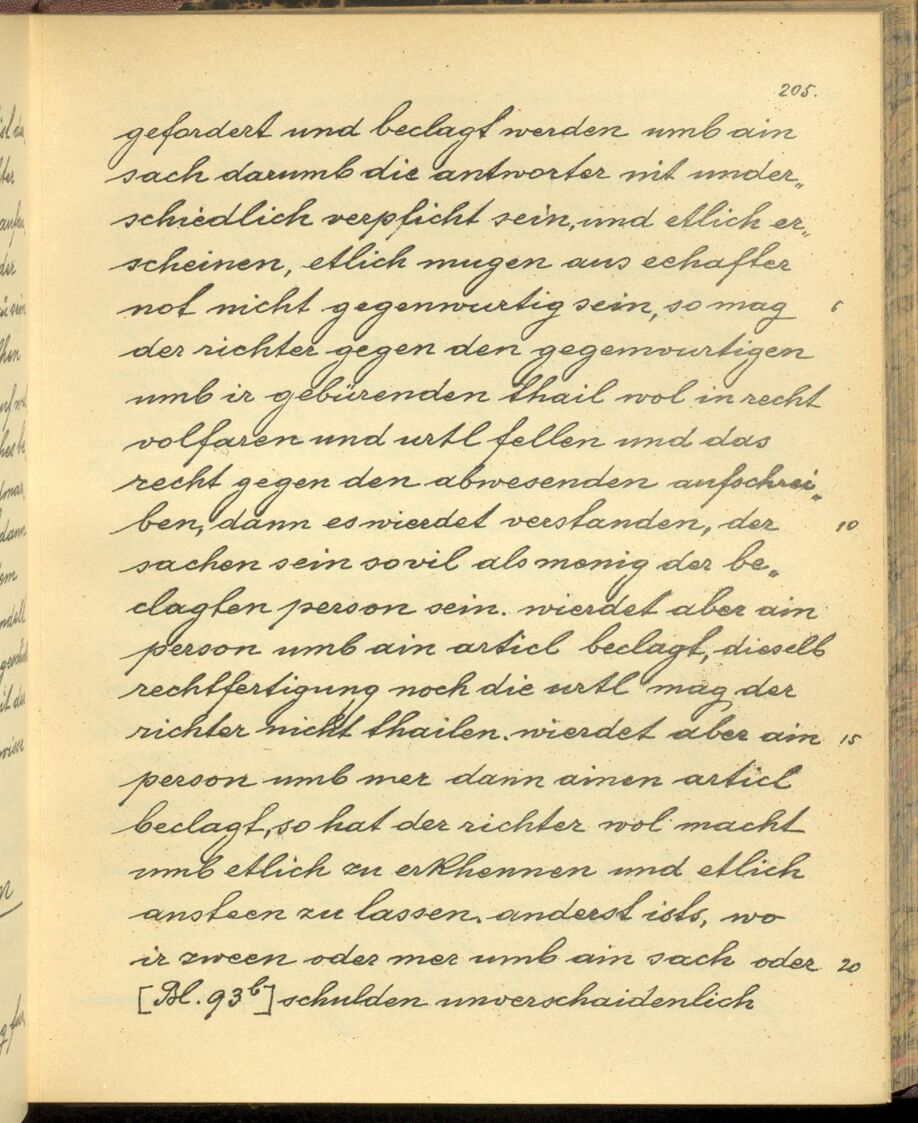 205.
gefordert und beclagt werden umb ain
sach darumb die antworter nit under„
schiedlich verpflicht sein, und etlich er„
scheinen, etlich mugen aus eehafter
not nicht gegenwurtig sein, so mag 6
der richter gegen den gegenwurtigen
umb ir gebürenden thail wol in recht
volfaren und urtl fellen und das
recht gegen den abwesenden aufschrei„
ben, dann es wierdet verstanden, der 10
sachen sein sovil als menig der be„
clagten person sein. wierdet aber ain
person umb ain articl beclagt, dieselb
rechtfertigung noch die urtl mag der
richter nicht thailen. wierdet aber ain 15
person umb mer dann ainen articl
beclagt, so hat der richter wol macht
umb etlich zu erkhennen und etlich
ansteen zu lassen. anderst ists, wo
ir zween oder mer umb ain sach oder 20
[Bl. 93b] schulden unverschaidenlich